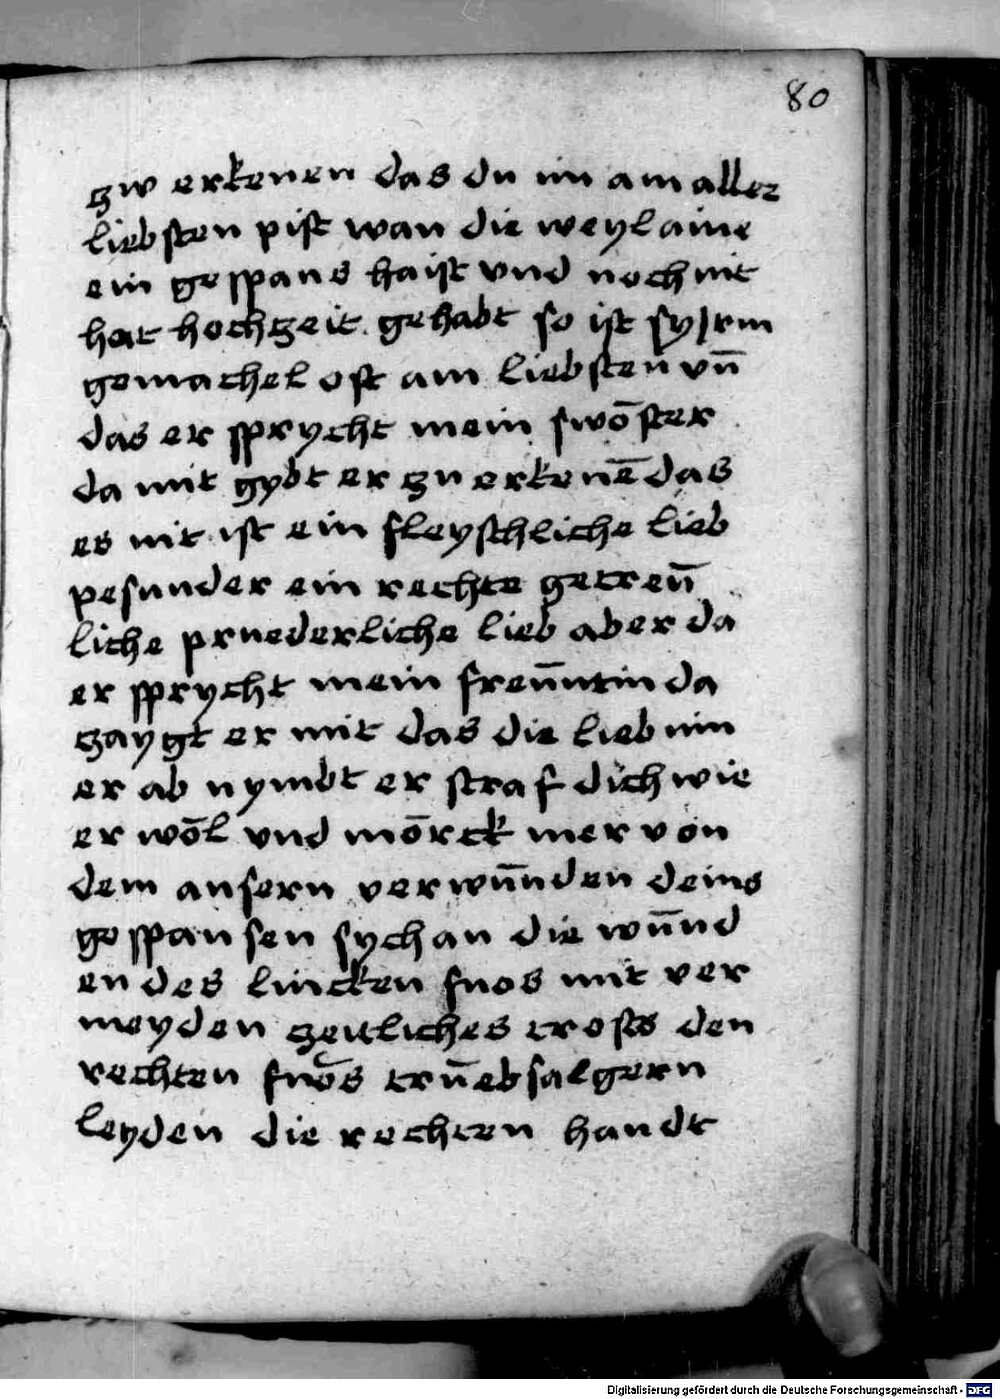 80
zw erkenen das du im am aller
liebsten pist wan die weyl aine
ein gespans haist vnd noch nit
hat hochzeit gehabt so ist sy jrm
gemachel oft am liebsten vn̄
das er sprycht mein swōster
da mit gybt er zu erkenē das
es nit ist ein fleyschliche lieb
pesunder ein rechte getreū
liche pruederliche lieb aber da
er sprycht mein freūntin da
zaygt er mit das die lieb nim
er ab nymbt er straf dich wie
er wōl vnd mōrck mer von
dem ansern verwūnden deins
gespansen sych an die wūnd
en des lincken fuos mit ver
meyden zeitliches trosts den
rechten fuōs trūebsal gern
leyden die rechten handt
Digitalisierung gefördert durch die Deutsche Forschungsgemeinschaft - DFG